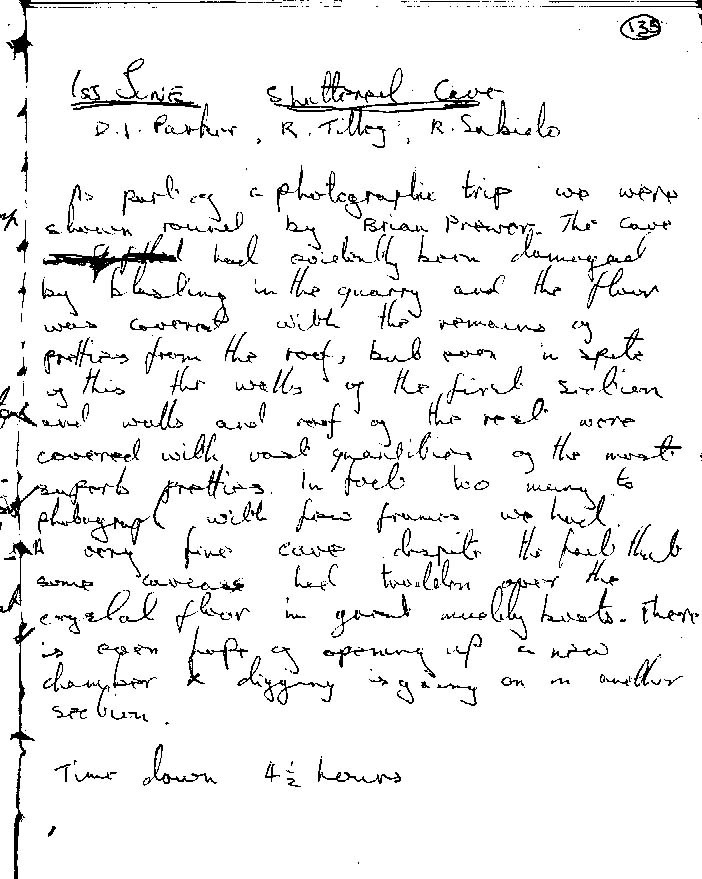 135
1st June Shatterel Cave
D.I. Parker, R. Tilley, R. Sabido
As part of a photographic trip we were
shown round by Brian Prewer. The cave
had evidently been damaged
by blasting in the quarry and the floor
was covered with the remains of
pretties from the roof, but even in spite
of this the walls of the first section
and walls and roof of the rest were
covered with vast quantities of the most
superb pretties. In fact too many to
photograph with few frames we had.
A very fine cave despite the fact that
some had trodden over the
crystal floor in great muddy boots. There
is even hope of opening up a new
chamber & digging is going on in another
section.
Time down 4½ hours